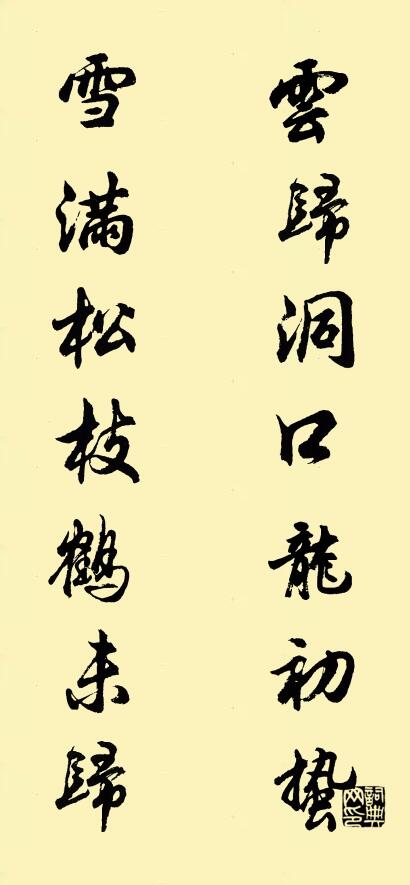 雲歸洞口龍初蟄
雪滿松枝鶴未歸
詞典網印